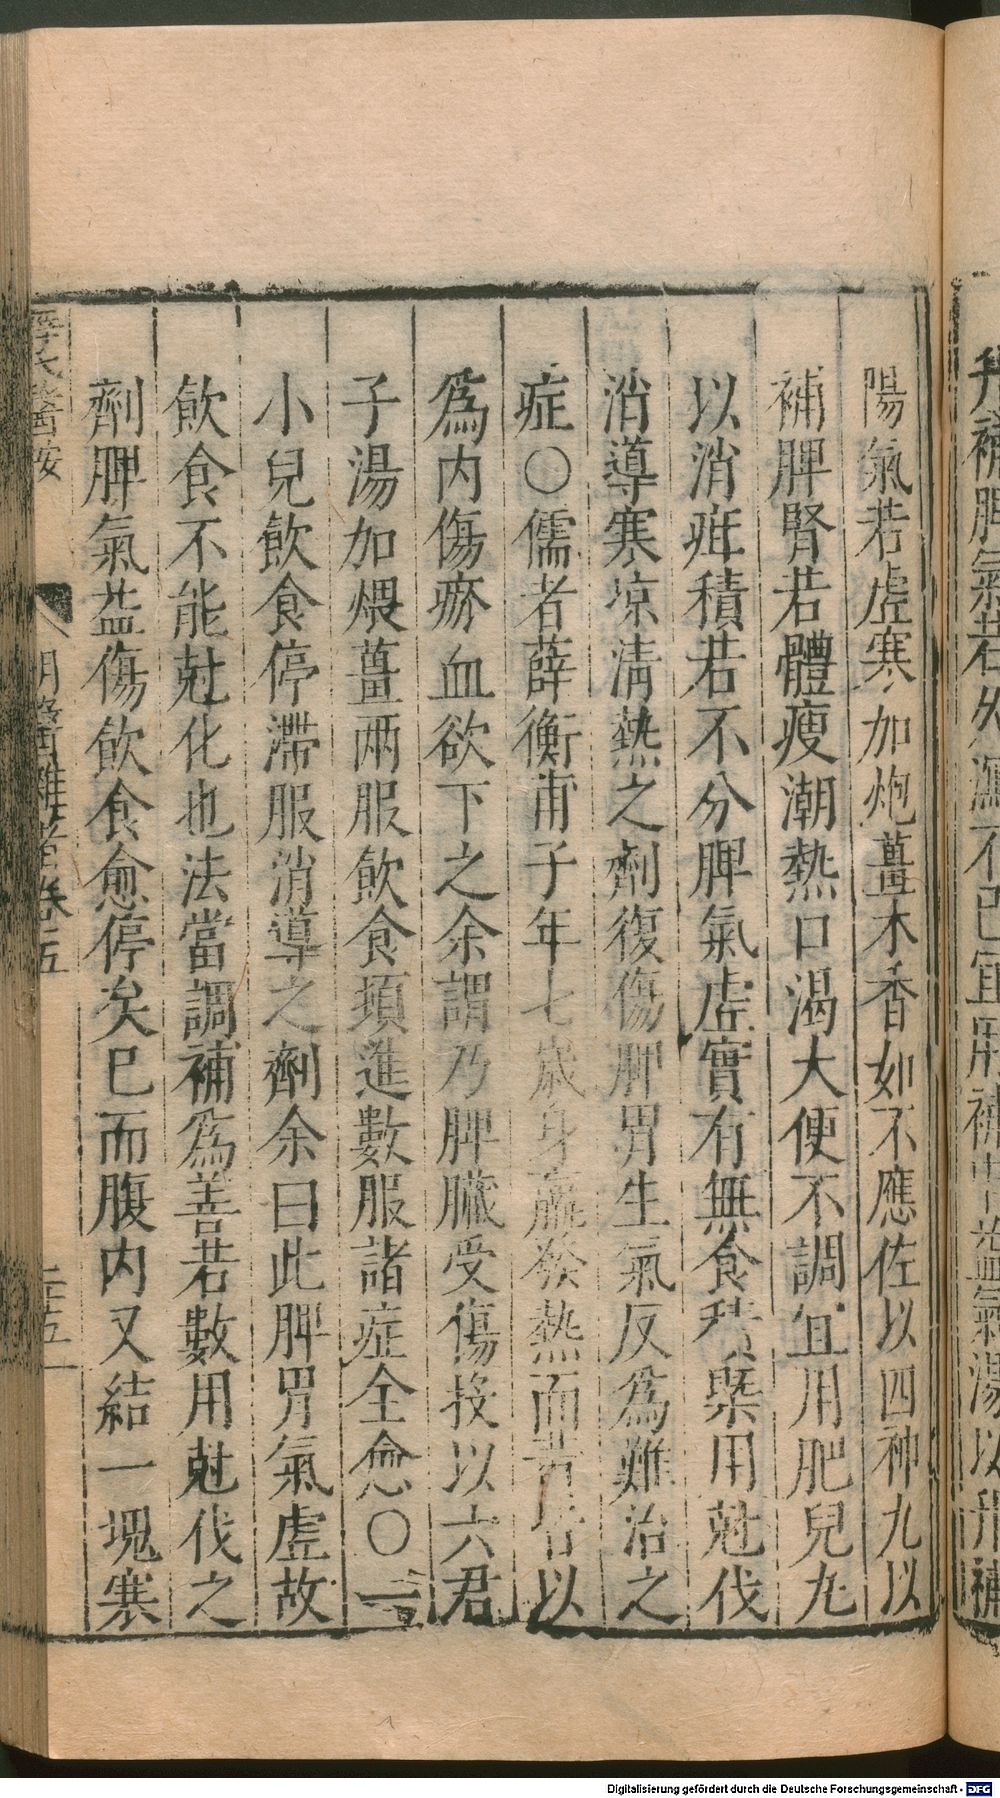 升補脾氣若久瀉不已宜用補中益氣湯以升補
陽氣若虛寒加炮薑木香如不應佐以四神丸以
補脾腎若體瘦潮熱口渴大便不調宜用肥兒丸
以消疳積若不分脾氣虛實有無食積槩用尅伐
消導寒凉清熱之劑復傷脾胃生氣反為難治之
症〇儒者薛衡甫子年七歲身羸發熱面黃者以
為内傷瘀血欲下之余謂乃脾臟受傷投以六君
子湯加煨薑兩服飲食頓進數服諸症全愈〇一
小兒飲食停滯服消導之劑余曰此脾胃氣虛故
飲食不能尅化也法當調補為善若數用尅伐之
劑脾氣益傷飲食愈停矣已而腹内又結一塊寒
薛氏醫按 明醫雜著卷五 三五
Digitalisierung gefördert durch die Deutsche Forschungsgemeinschaft - DFG